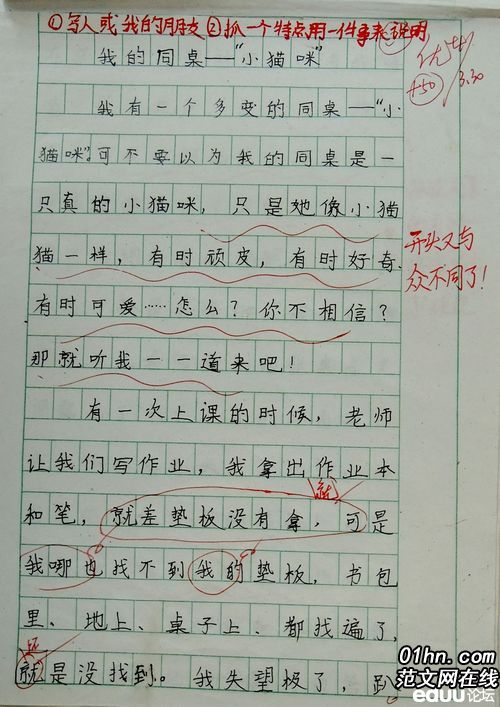 ①写人或我的朋友②抓一个特点用一件事来说明
我的同桌——“小猫咪”
优
+50
3.30
我有一个多变的同桌——“小
猫咪”。可不要以为我的同桌是一
只真的小猫咪，只是她像小猫
猫一样，有时顽皮，有时好奇、
有时可爱……怎么？你不相信？
那就听我一一道来吧！
开头又与
众不同了！
有一次上课的时候，老师
让我们写作业，我拿出作业本
就
和笔，就差垫板没有拿，可是
我哪也找不到我的垫板，书包
里、地上、桌子上、都找遍了，
还
就是没找到。我失望极了，趴
01hn.com
范文网在线
eduu论坛